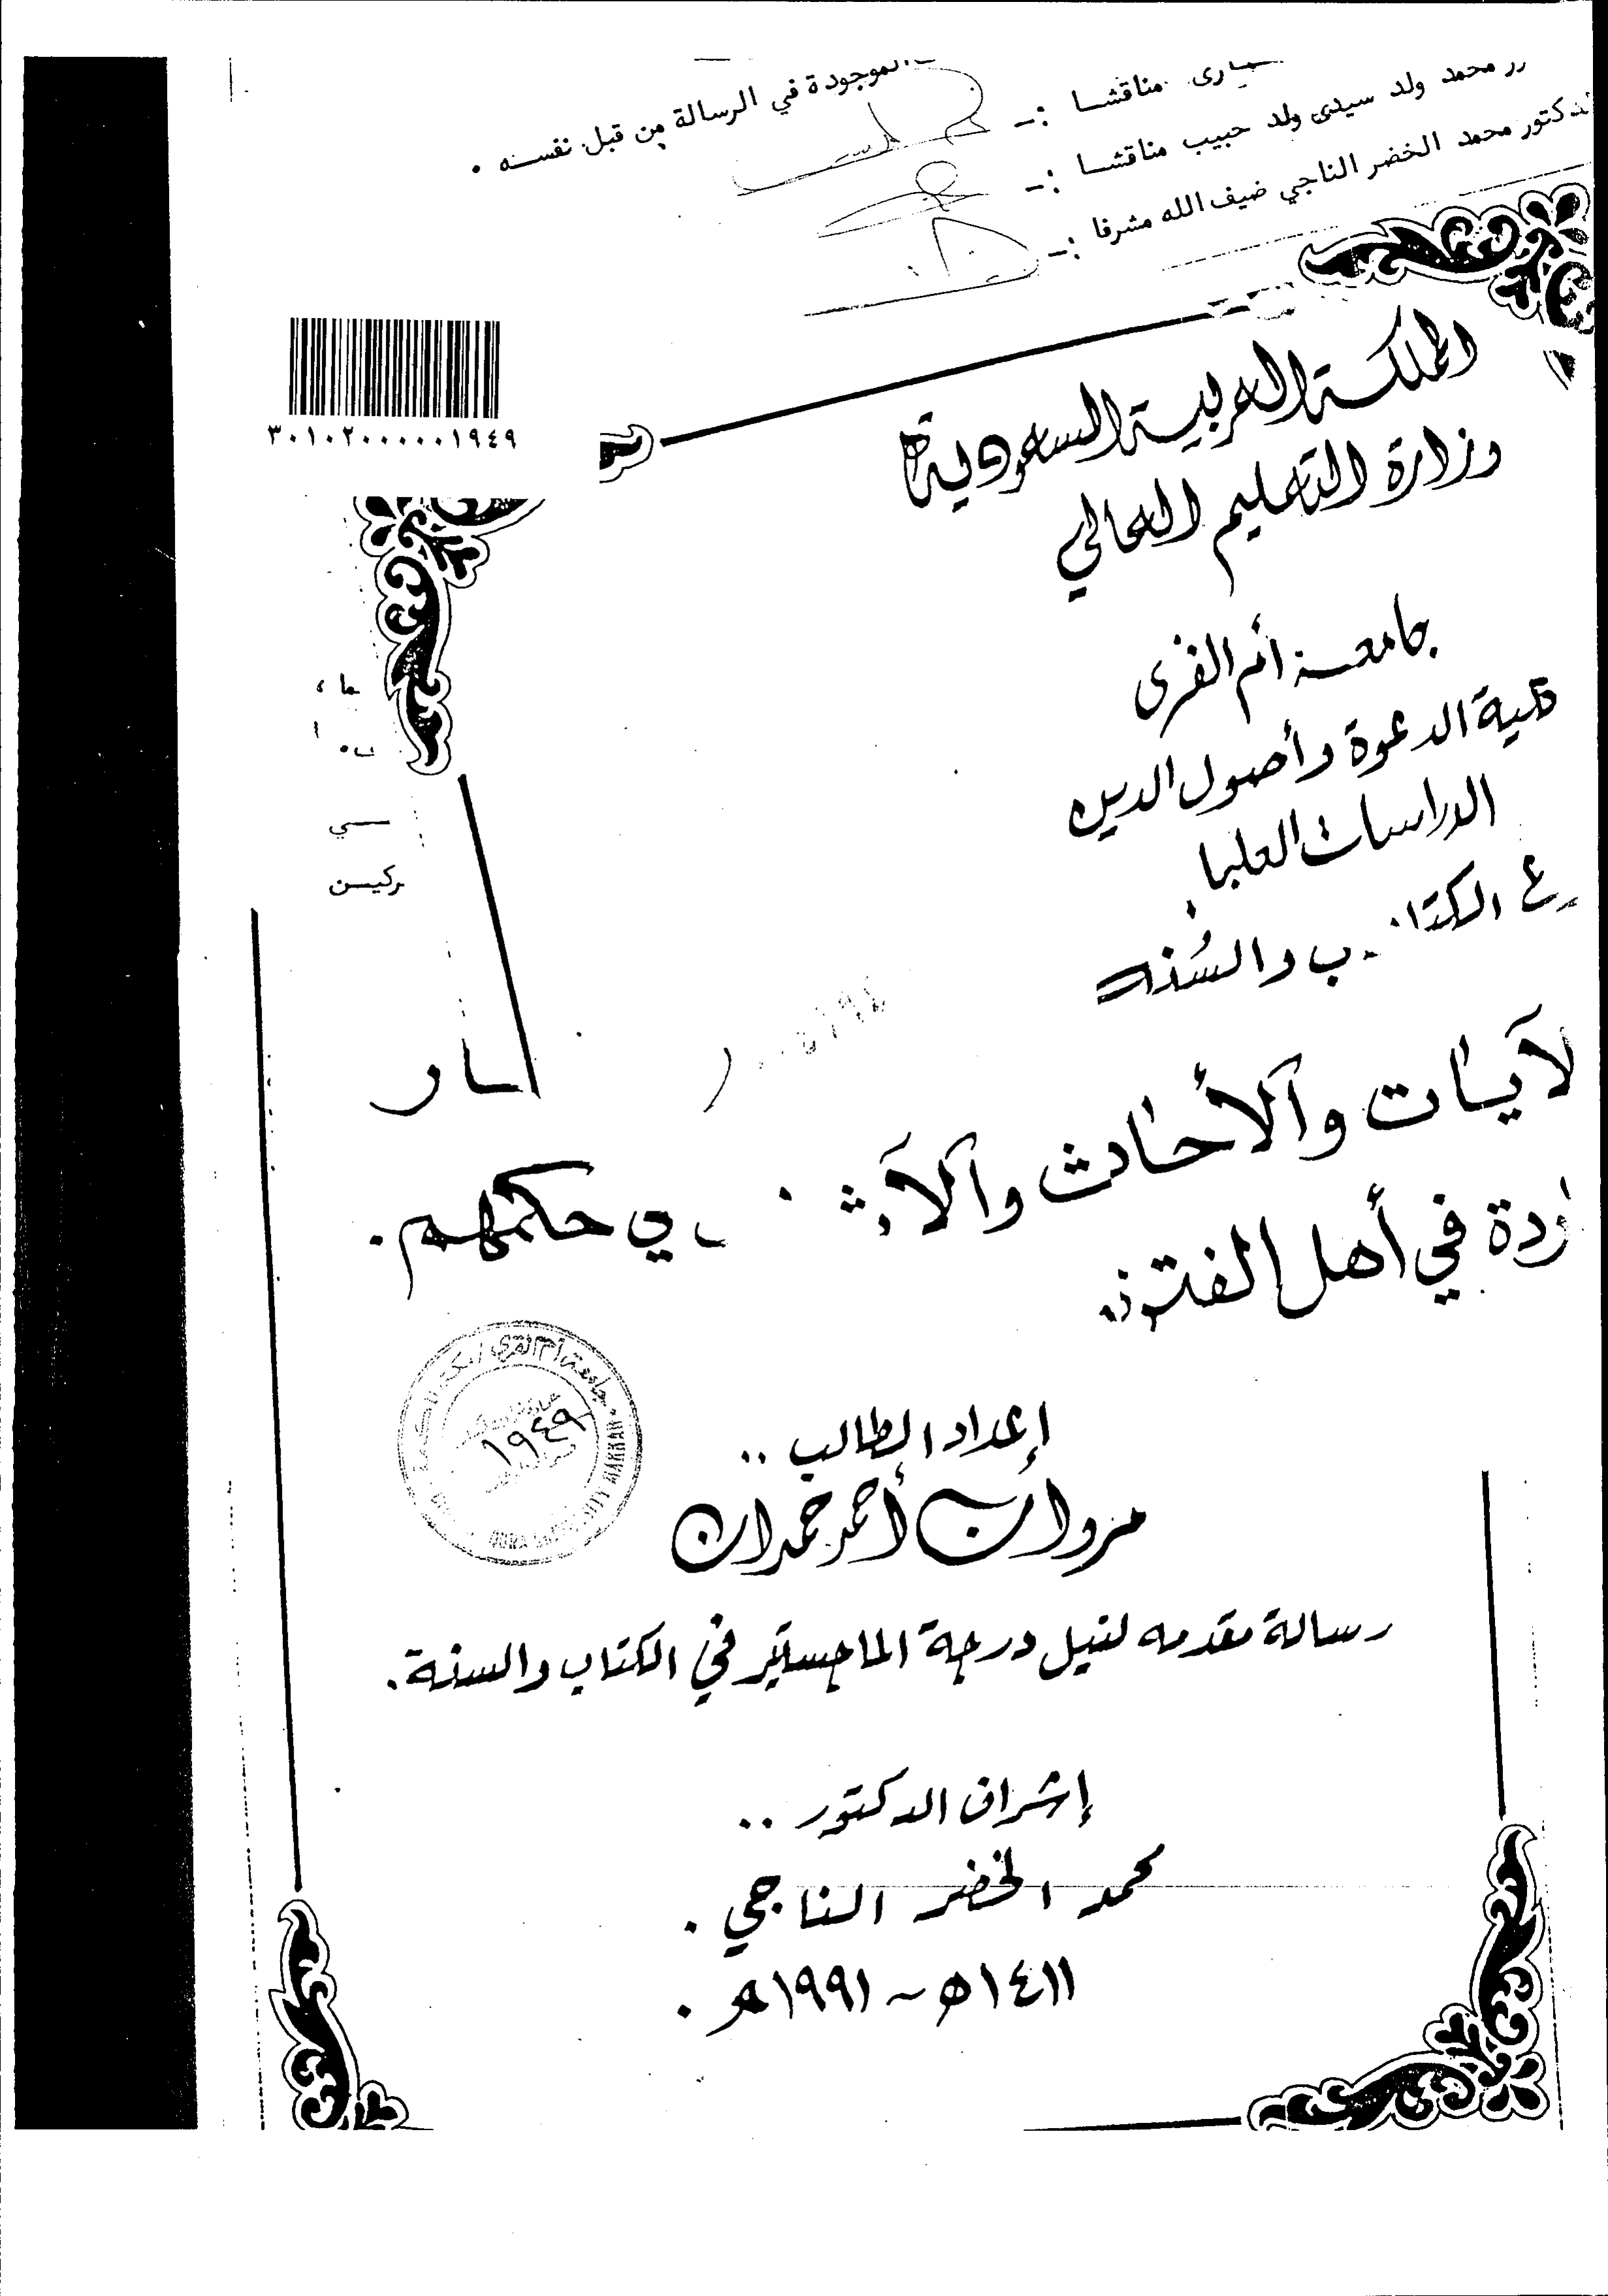 الموجودة في الرسالة من قبل نفسه .
مناقشا :-
محمد ولد سيدى ولد حبيب مناقشا :-
الدكتور محمد الخضر الناجي ضيف الله مشرفا :-
٣٠١٠٢٠٠٠٠٠١٩٤٩
المملكة العربية السعودية
وزارة التعليم العالي
جامعة أم القرى
كلية الدعوة وأصول الدين
الدراسات العليا
ع الكتاب والسنة
لآيات والأحاديث والآثار
ردة في أهل الفترة
ي حكمهم .
جامعة أم القرى
١٩٤٩
إعداد الطالب ..
مروان أحمد حمدان
رسالة مقدمه لنيل درجة الماجستير في الكتاب والسنة .
إشراف الدكتور ..
محمد الخضر الناجي .
١٤١١هـ ~ ١٩٩١م .